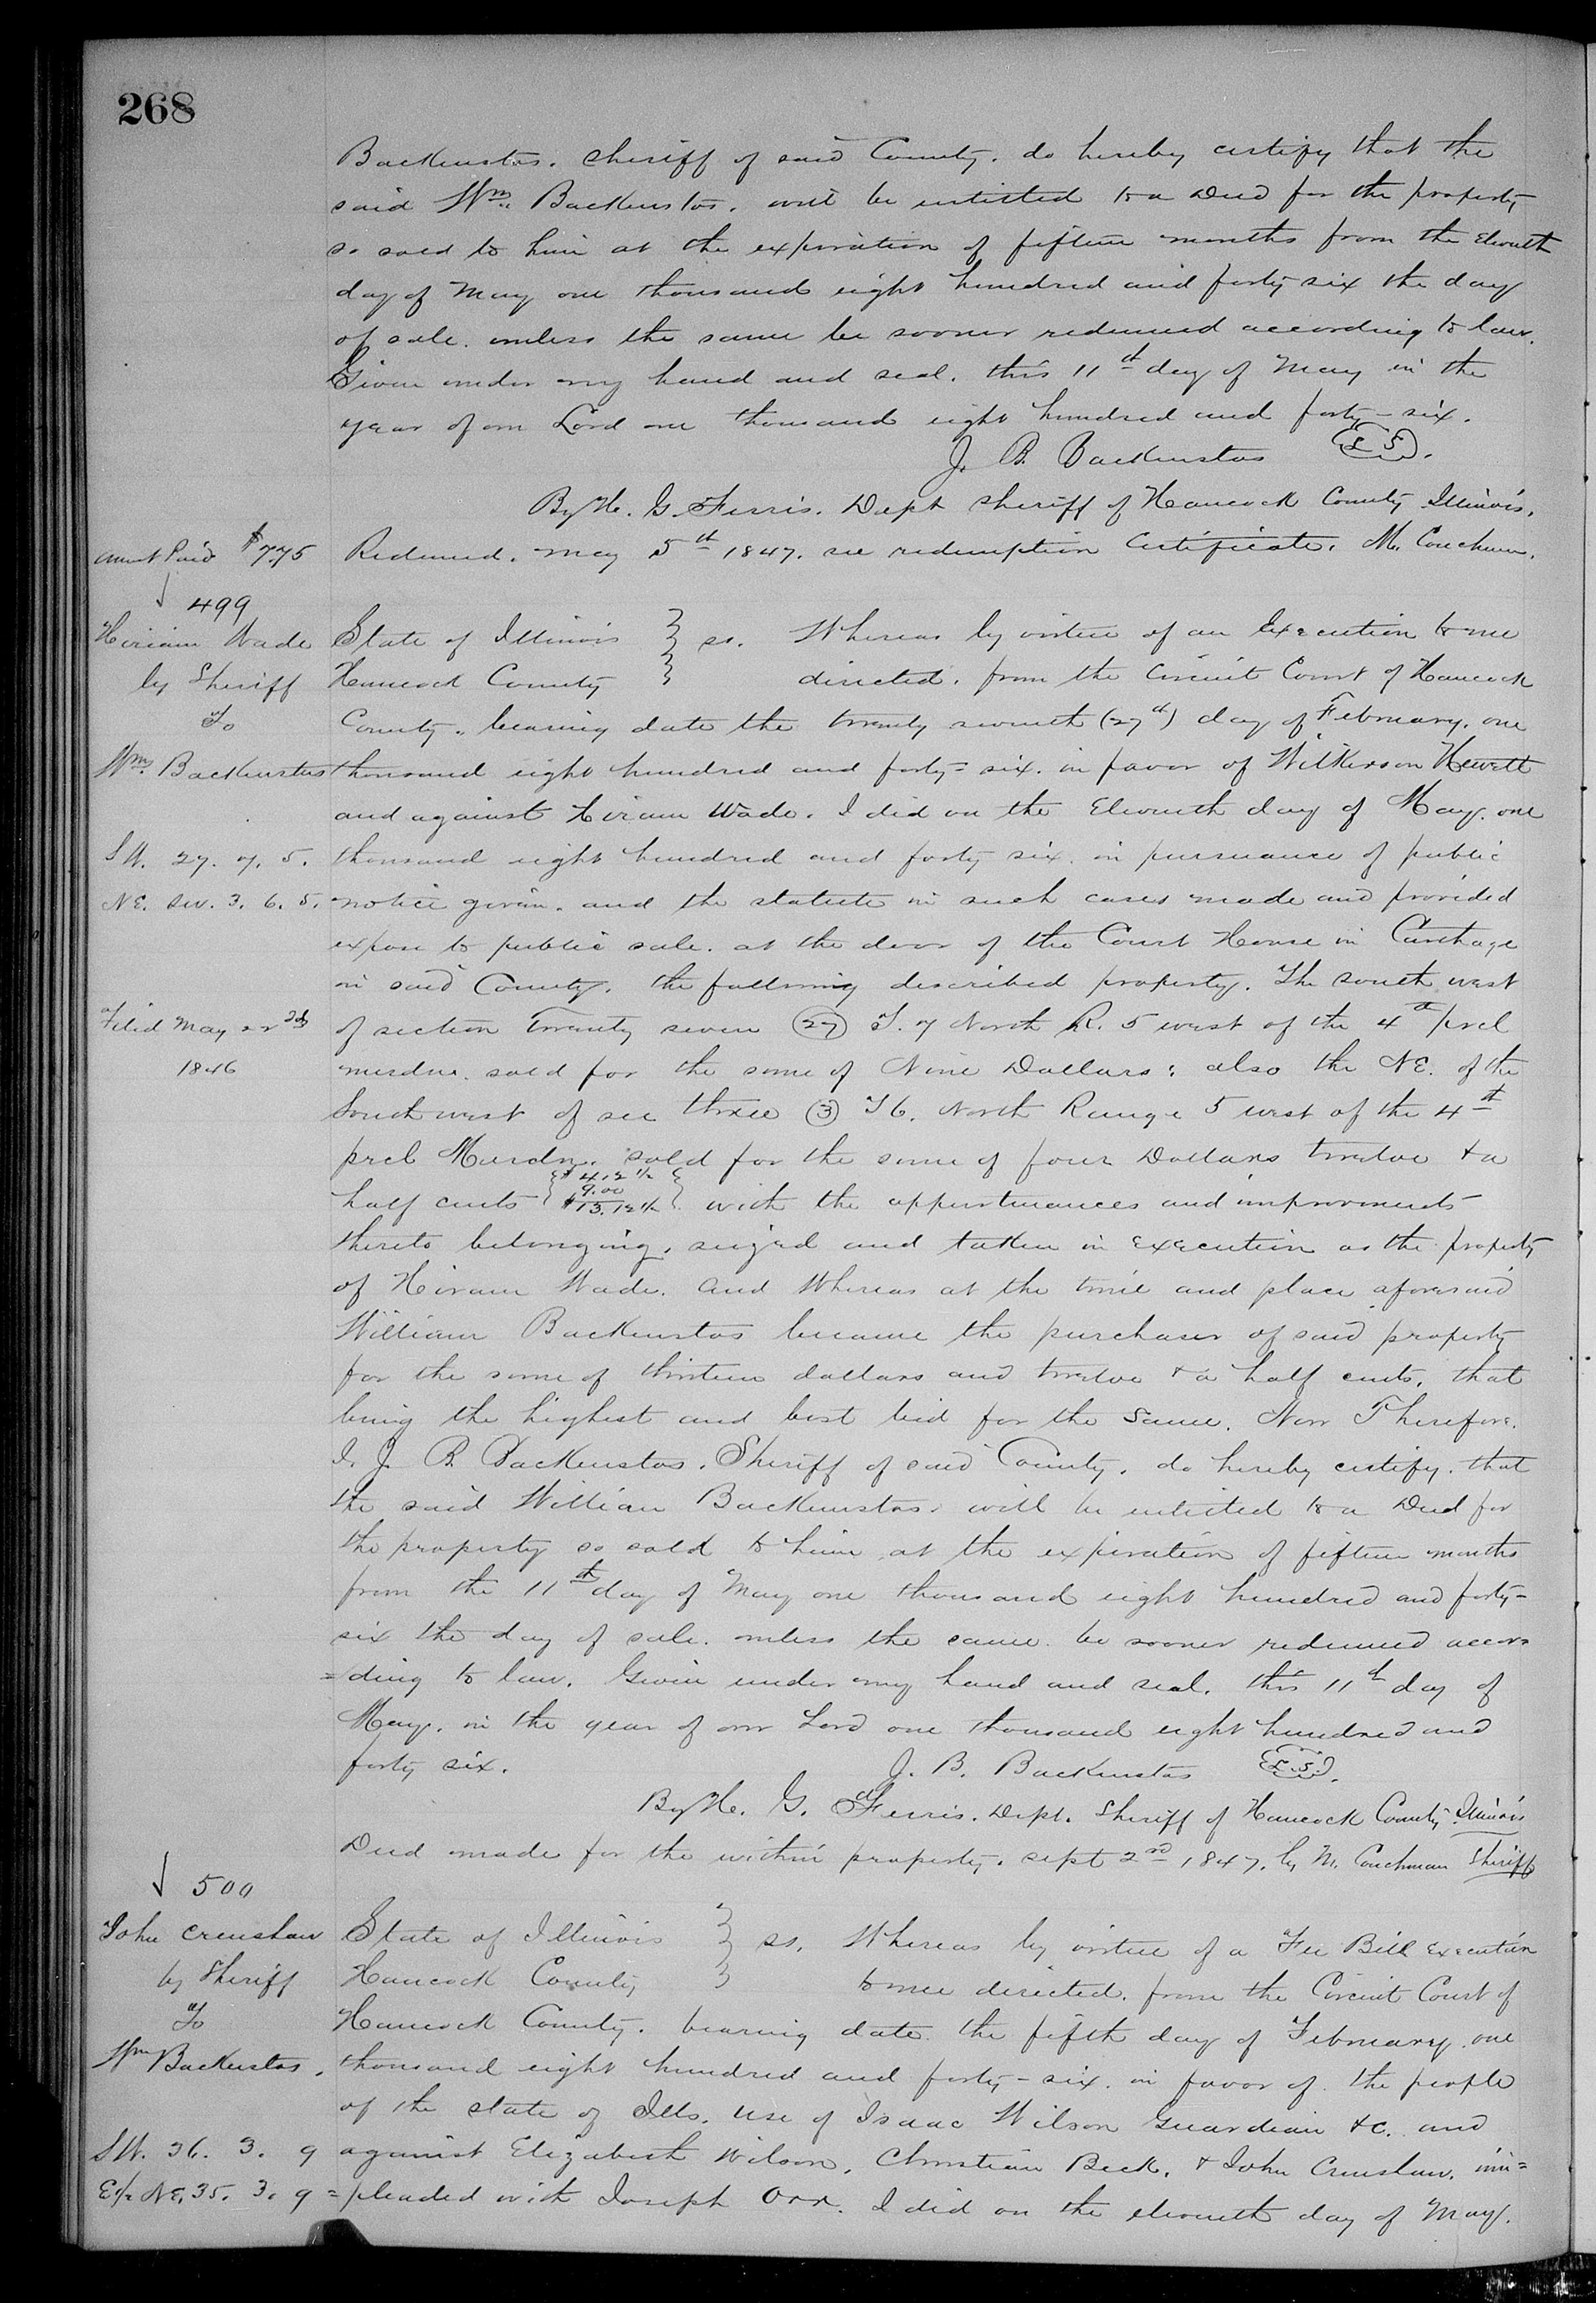 268
Backenstos. Sheriff of said County. do hereby certify that the
said Wm. Backenstos. will be entitled to a Deed for the property
so sold to him at the expiration of fifteen months from the Eleventh
day of May one thousand eight hundred and forty-six the day
of sale. unless the same be sooner redeemed according to law.
Given under my hand and seal. this 11th day of May in the
year of our Lord one thousand eight hundred and forty-six.
J. B. Backenstos L S.
By H. G. Ferris. Dept Sheriff of Hancock County Illinois.
amnt Paid $7.75 Redeemed. May 5th 1847. see redemption Certificate. M. Couchman.
499
Hiriam Wade State of Illinois } ss. Whereas by virtue of an Execution to me
by Sheriff Hancock County } directed. from the Circuit Court of Hancock
To County. bearing date the twenty seventh (27th) day of February. one
Wm. Backenstos thousand eight hundred and forty-six. in favor of Wilkerson Hewett
and against Hiram Wade. I did on the Eleventh day of May. one
S W. 27. 7. 5. thousand eight hundred and forty six. in pursuance of public
NE. SW. 3. 6. 5. notice given. and the statute in such cases made and provided
expose to public sale. at the door of the Court House in Carthage
in said County. the following described property. The south west
Filed May 22nd of section Twenty seven (27) T. 7 North R. 5 west of the 4th prcl
1846 merdn. sold for the some of Nine Dollars: also the NE. of the
South west of sec three (3) T 6. North Range 5 west of the 4th
prcl Merdn. sold for the some of four Dollars twelve & a
half cents { $4.12 1/2 9.00 $13.12 1/2 } with the appurtenances and improvements
thereto belonging. seized and taken in execution as the property
of Hiram Wade. and Whereas at the time and place aforesaid
William Backenstos became the purchaser of said property
for the some of thirteen dollars and twelve & a half cents. that
being the highest and best bid for the same. Now Therefore.
I. J. B. Backenstos. Sheriff of said County. do hereby certify. that
the said William Backenstos. will be entitled to a Deed for
the property so sold to him at the expiration of fifteen months
from the 11th day of May one thousand eight hundred and forty-
six the day of sale. unless the same be sooner redeemed accor
=ding to law. Given under my hand and seal. this 11th day of
May. in the year of our Lord one thousand eight hundred and
forty six. J. B. Backenstos L.S.
By H. G. Ferris. Dept. Sheriff of Hancock County Illinois
Deed made for the within property. sept 2nd 1847. by M. Couchman Sheriff
500
John Crenshaw State of Illinois } ss. Whereas by virtue of a Fee Bill execution
by Sheriff Hancock County } to me directed. from the Circuit Court of
To Hancock County. bearing date the fifth day of February. one
Wm Backenstos. thousand eight hundred and forty-six. in favor of the people
of the state of Ills. use of Isaac Wilson Guardian &c. and
S W. 36. 3. 9 against Elizabeth Wilson, Christian Beck. & John Crenshaw. im=
E/2 NE. 35. 3. 9 =pleaded with Joseph Orr. I did on the eleventh day of May.